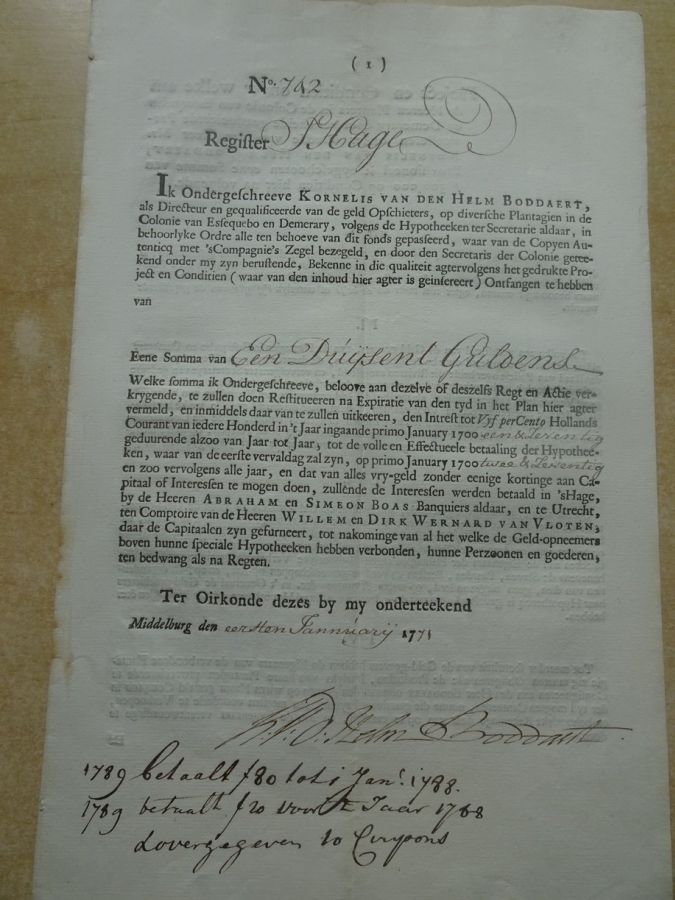 ( 1 )
No. 742
Register S'Hage
Ik Ondergeschreeve KORNELIS VAN DEN HELM BODDAERT,
als Directeur en gequalificeerde van de geld Opschieters, op diversche Plantagien in de
Colonie van Essequebo en Demerary, volgens de Hypotheeken ter Secretarie aldaar, in
behoorlyke Ordre alle ten behoeve van dit fonds gepasseerd, waar van de Copyen Au-
tenticq met 'sCompagnie's Zegel bezegeld, en door den Secretaris der Colonie getee-
kend onder my zyn berustende, Bekenne in die qualiteit agtervolgens het gedrukte Pro-
ject en Conditien ( waar van den inhoud hier agter is geinsereert ) Ontfangen te hebben
van
Eene Somma van Een Duÿsent Guldens
Welke somma ik Ondergeschreeve, beloove aan dezelve of deszelfs Regt en Actie ver-
krygende, te zullen doen Restitueeren na Expiratie van den tyd in het Plan hier agter
vermeld, en inmiddels daar van te zullen uitkeeren, den Intrest tot Vyf per Cento Hollands
Courant van iedere Honderd in 't Jaar ingaande primo January 1700 een & Zeventig
geduurende alzoo van Jaar tot Jaar, tot de volle en Effectueele betaaling der Hypothee-
ken, waar van de eerste vervaldag zal zyn, op primo January 1700 twee & Zeventig
en zoo vervolgens alle jaar, en dat van alles vry-geld zonder eenige kortinge aan Ca-
pitaal of Interessen te mogen doen, zullende de Interessen werden betaald in 'sHage,
by de Heeren ABRAHAM en SIMEON BOAS Banquiers aldaar, en te Utrecht,
ten Comptoire van de Heeren WILLEM en DIRK WERNARD VAN VLOTEN,
daar de Capitaalen zyn gefurneert, tot nakominge van al het welke de Geld-opneemers
boven hunne speciale Hypotheeken hebben verbonden, hunne Perzoonen en goederen,
ten bedwang als na Regten.
Ter Oirkonde dezes by my onderteekend
Middelburg den eersten Jannuarij 1771
K. V. D. Helm Boddaert
1789 betaalt f80 tot 1 Janr. 1788.
1789 betaalt f20 voor t Jaar 1788
& overgegeven 10 Coupons